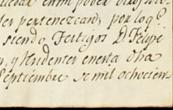 der pertenezcan, por log.e
siendo Testigos D. Felipe
y Residentes enesta dha
Septiembre de mil ochocien